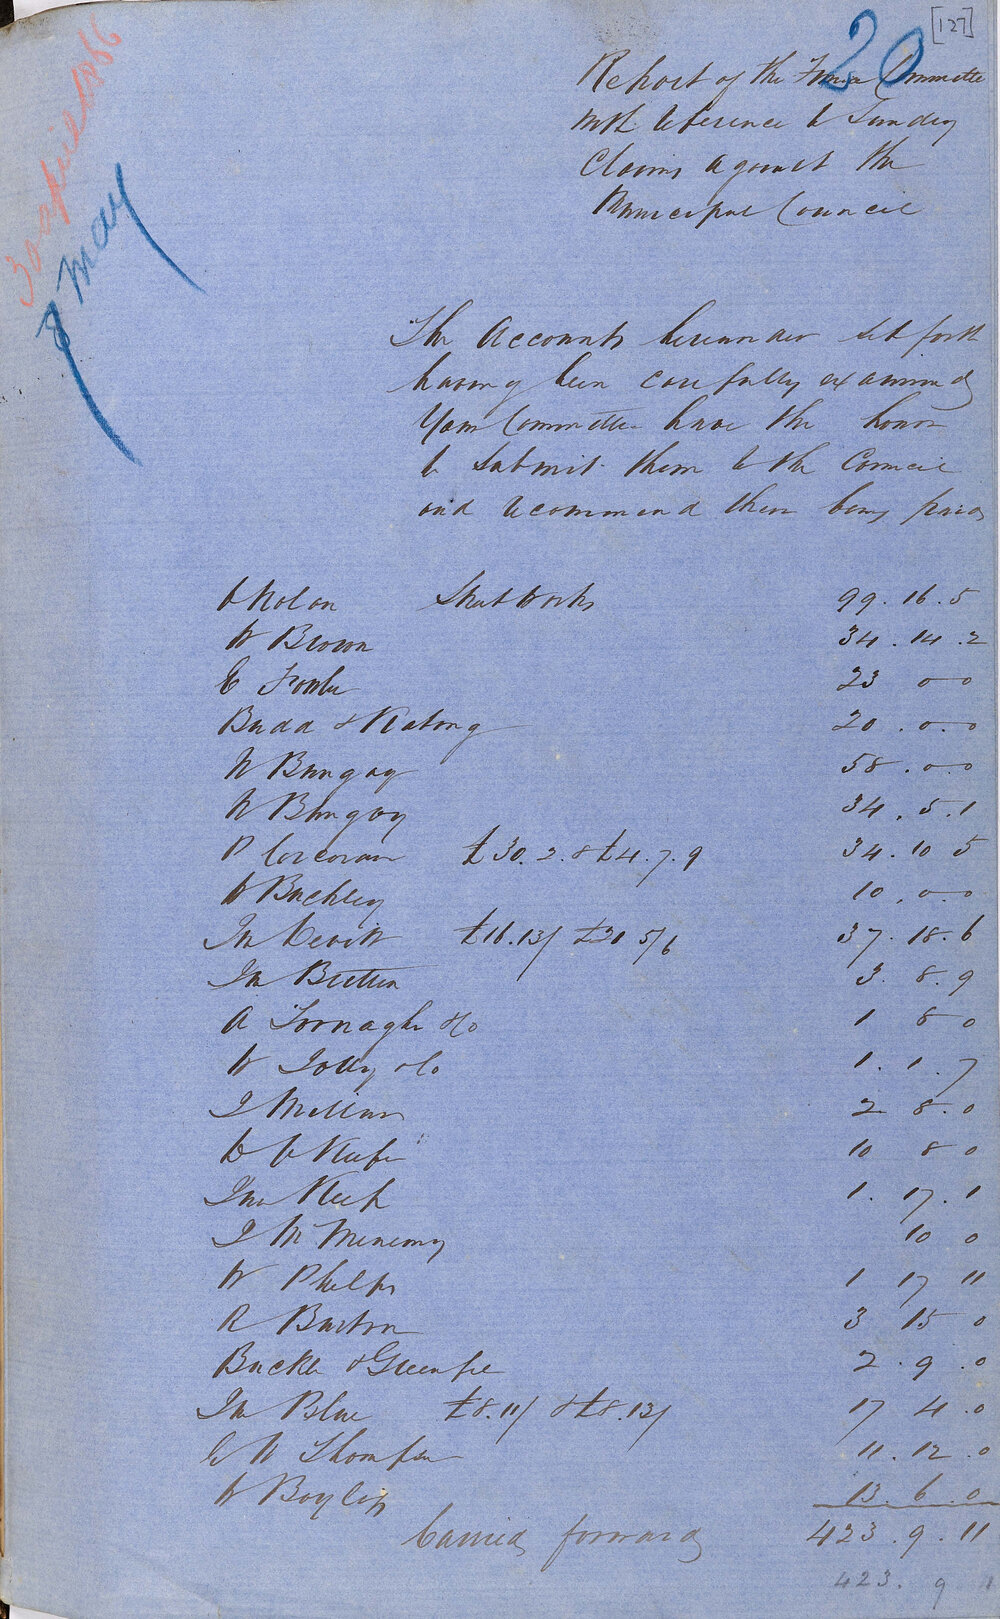 [127]
20
30 April 1866
8 May
Report of the Finance Committee
with reference to Sundry
Claims against the
Municipal Council
The Accounts hereunder set forth
having been carefully examined
Your Committee have the honor
to submit them to the Council
and recommend them being paid
Nolan Street Works 99.16.5
W Brown 34.14.2
E Fowler 23 0 0
Budd & Keating 20.0.0
N Bungay 58.0.0
N Bungay 34.5.1
P Corcoran £30.2.8 £4.7.9 34.10 5
W Buckley 10.0.0
Jn Devitt £16.13/ £21 5/6 37.18.6
Jn Britten 3.8.9
A Tornaghi &Co 1 8 0
W Jolly &Co 1.1.7
J Millar 2 8.0
D O Keefe 10 8 0
Jno Keep 1.17.1
J McMenemy 10 0
W Phelps 1 17 11
R Burton 3 15 0
Buckle & 2.9.0
Jn Blue £8.11/ & £8.13/ 17 4.0
G W Thompson 11.12.0
W Baylis 13.6.0
Carried forward 423.9.11
423. 9 1